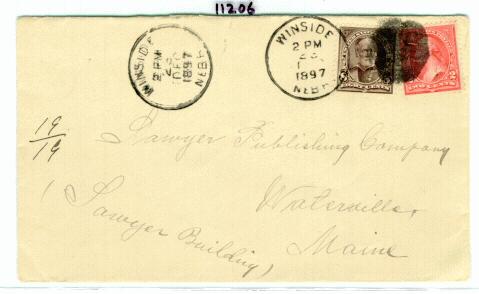 112.06
WINSIDE
2 PM
DEC
1897
NEBR
WINSIDE
2 PM
1897
NEBR
19/19
Sawyer Publishing Company
Waterville,
Maine
(Sawyer Building)